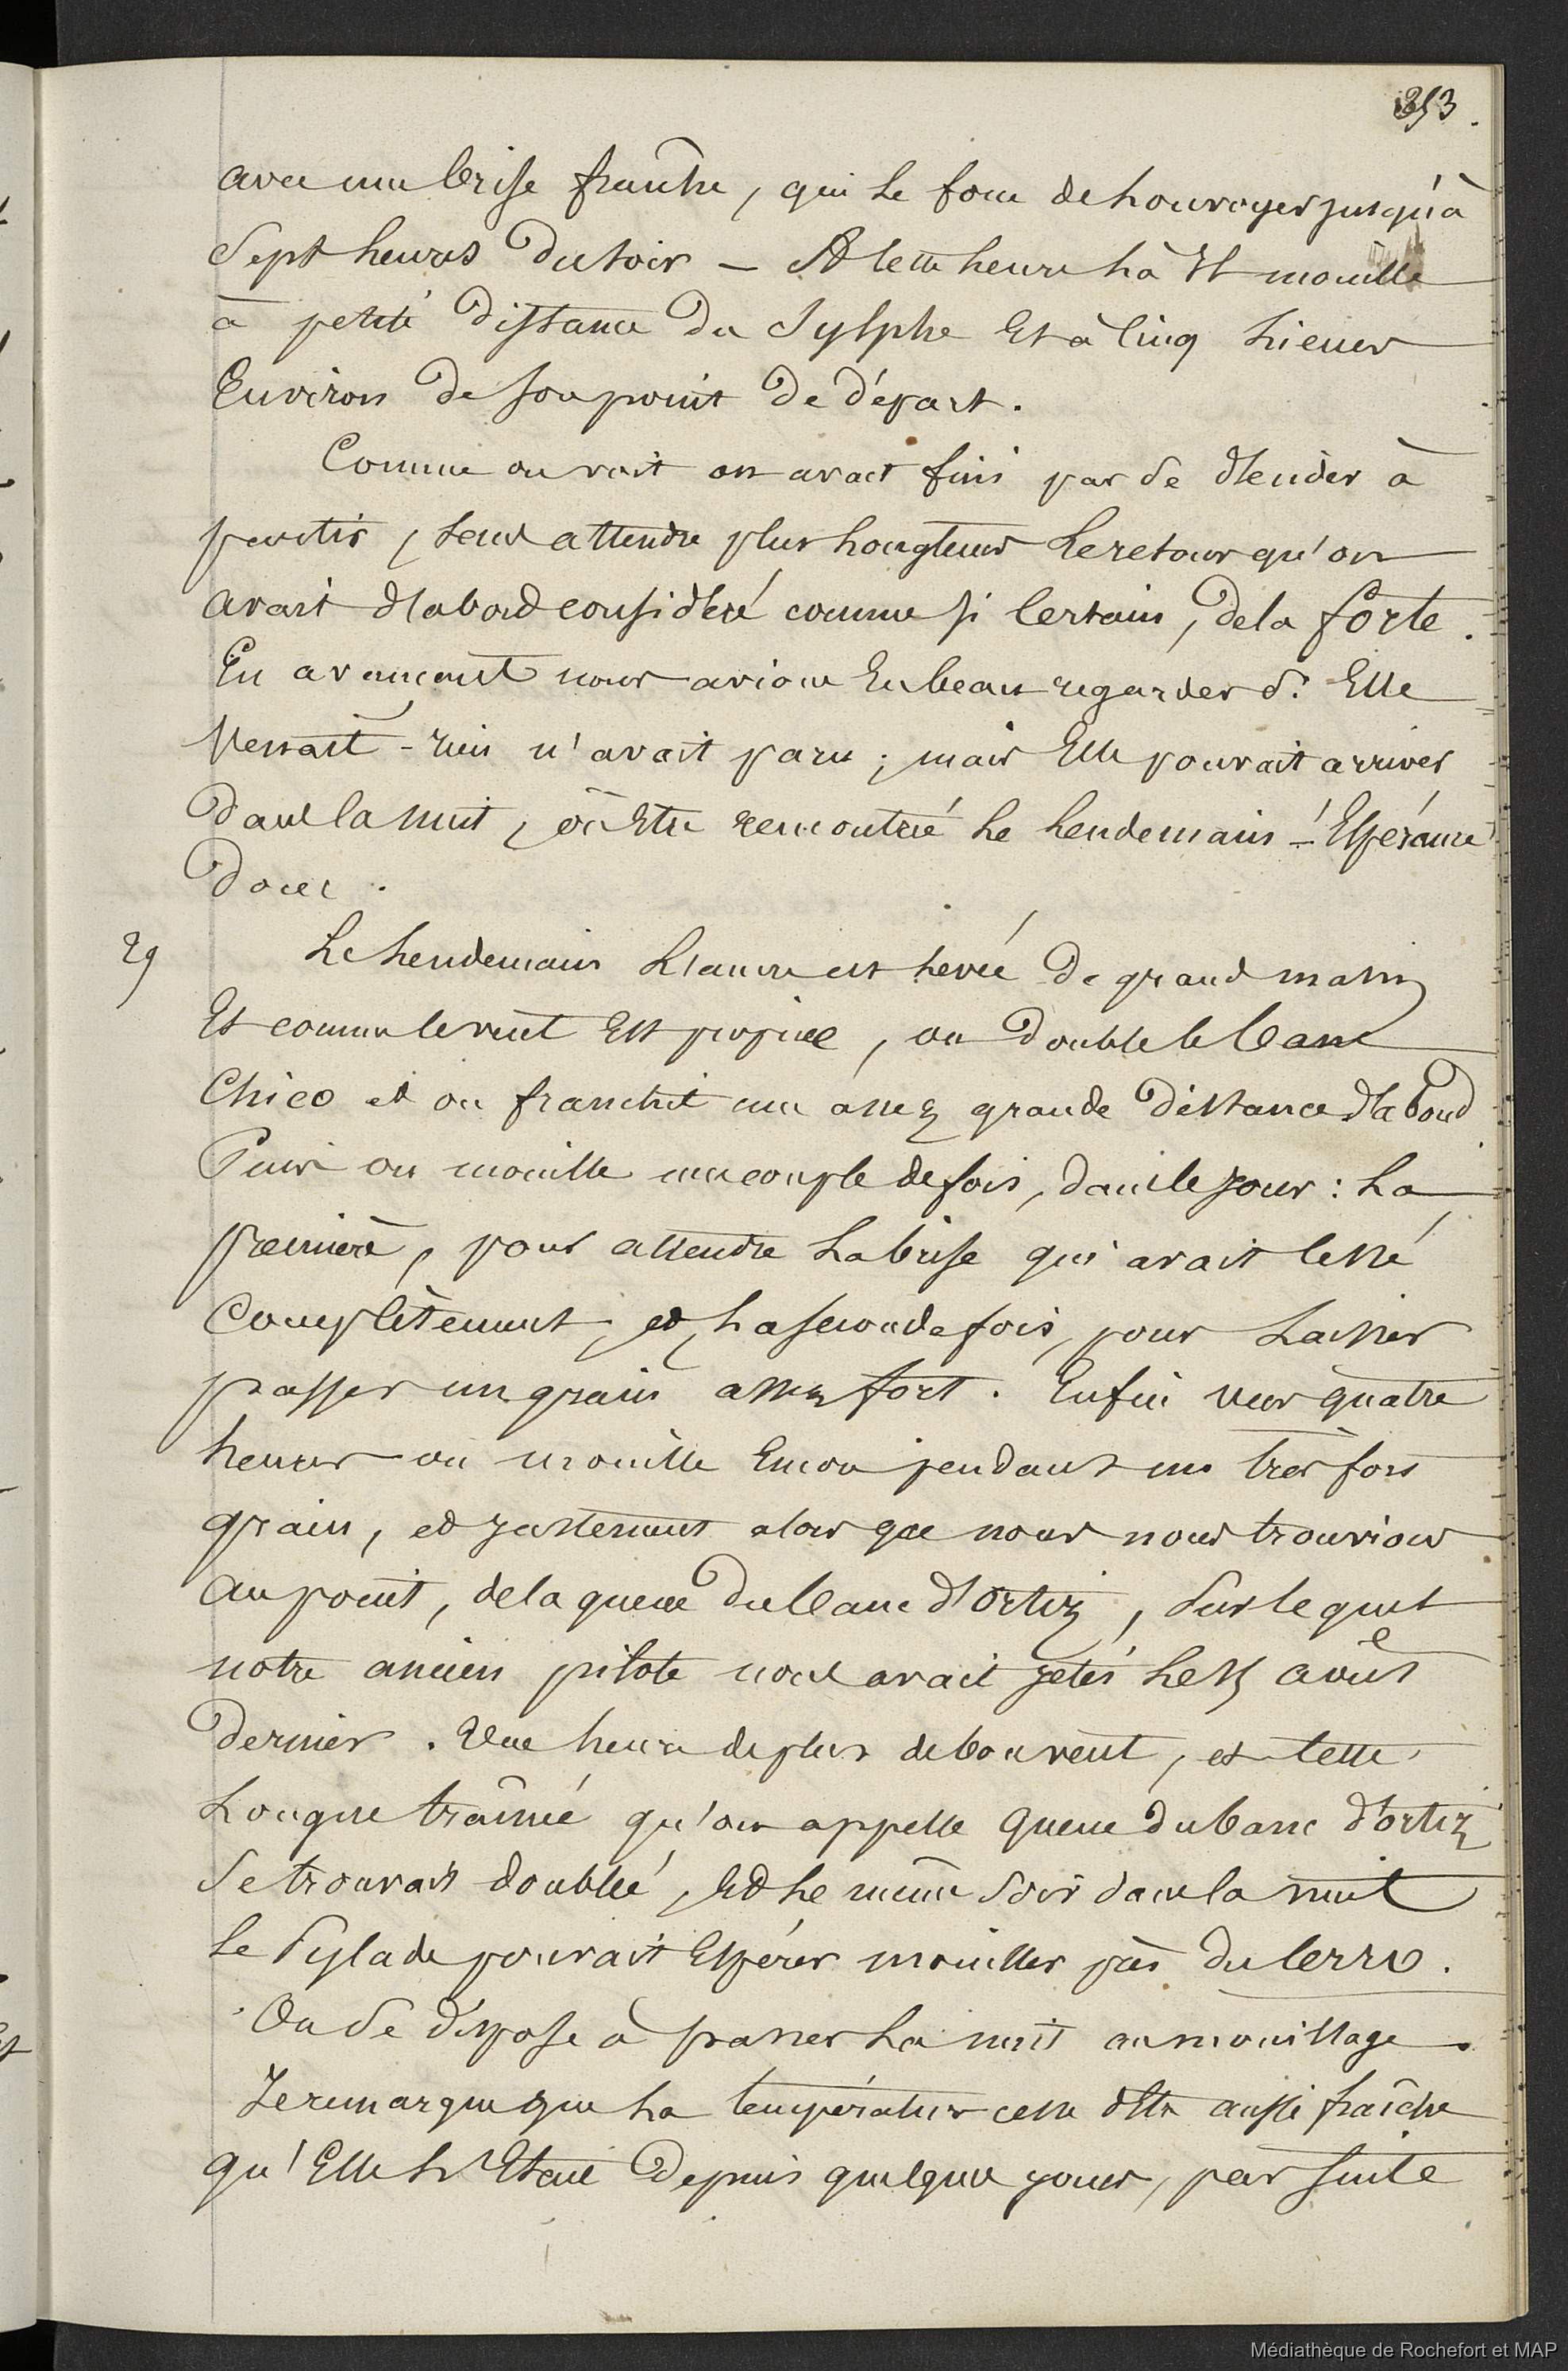 353.
avec une brise fraîche, qui le force de louvoyer jusqu'à
Sept heures du soir — A cette heure là Il mouille
à petite distance du Sylphe Et à Cinq Lieues
Environ de son point de départ.
Comme on voit on avait fini par se décider à
partir, sans attendre plus longtems Le retour qu'on
avait d'abord considéré comme si Certain, de la forte.
En avançant nous avions Eu beau regarder si Elle
Venait - rien n'avait paru ; mais Elle pouvait arriver
dans la nuit, où Etre rencontrée le Lendemain - Espérance
donc.
29
Le Lendemain L'ancre est levée de grand matin
Et comme le vent Est propice, on double le banc
Chico et on franchit une assez grande distance d'abord
Puis on mouille une couple de fois, dans le jour : La
première, pour attendre La brise qui avait Cessé
Complètement, et La seconde fois, pour Laisser
passer un grain assez fort. Enfin vers quatre
heures on mouille Encore pendant un très fort
grain, et justement alors que nous nous trouvions
au point, de la queue du banc d'Ortiz, Sur lequel
notre ancien pilote nous avait jetés Le août
dernier. Une heure de plus de bon vent, et Cette
Longue traînée qu'on appelle queue du banc d'ortiz
Se trouvait doublée, Et Le même Soir dans la nuit
Le Pylade pouvait Espérer mouiller près du Cerro.
On Se dispose à passer La nuit au mouillage.
Je remarque que La température cesse d'être aussi fraîche
qu'Elle L'Etait depuis quelques jours, par Suite
Médiathèque de Rochefort et MAP